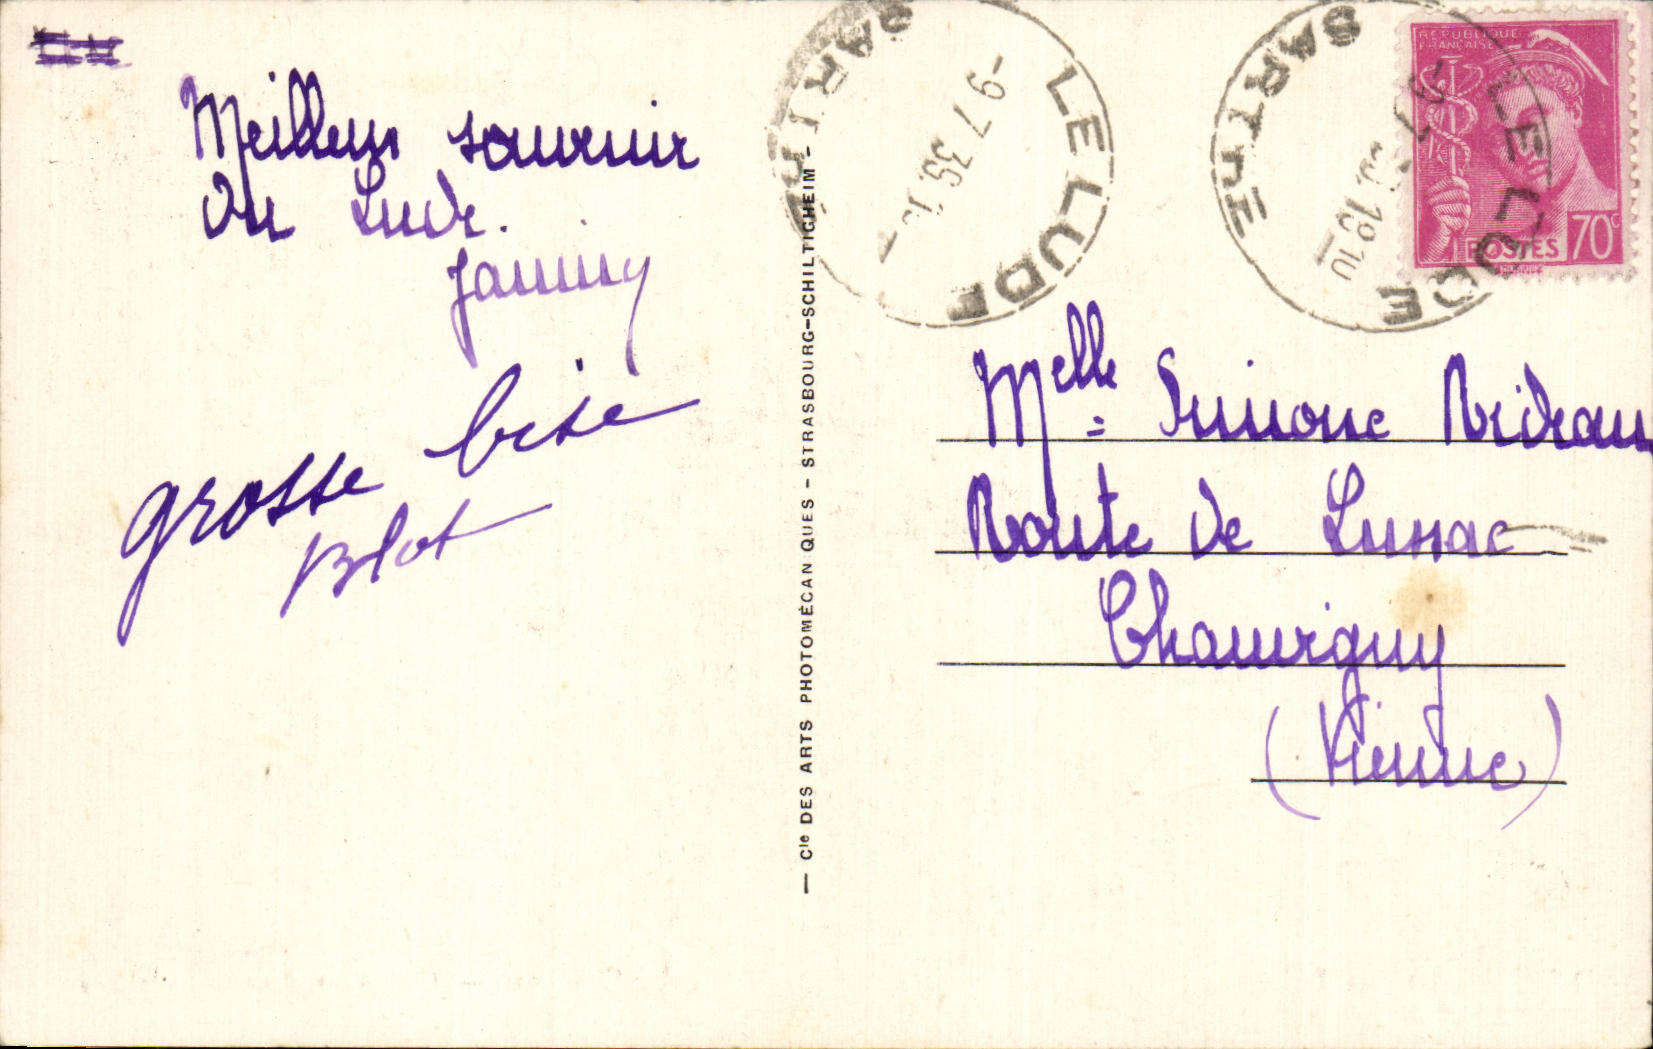 Meilleur souvenir
du Lude.
Janiny
grosse bise
Blot
— Cie DES ARTS PHOTOMÉCANIQUES – STRASBOURG–SCHILTIGHEIM –
LE LUDE
SARTHE
-9 7 39
LE LUDE
SARTHE
REPUBLIQUE
FRANÇAISE
POSTES 70c
Melle Simone Rideau
Route de Lussac
Chauvigny
(Vienne)